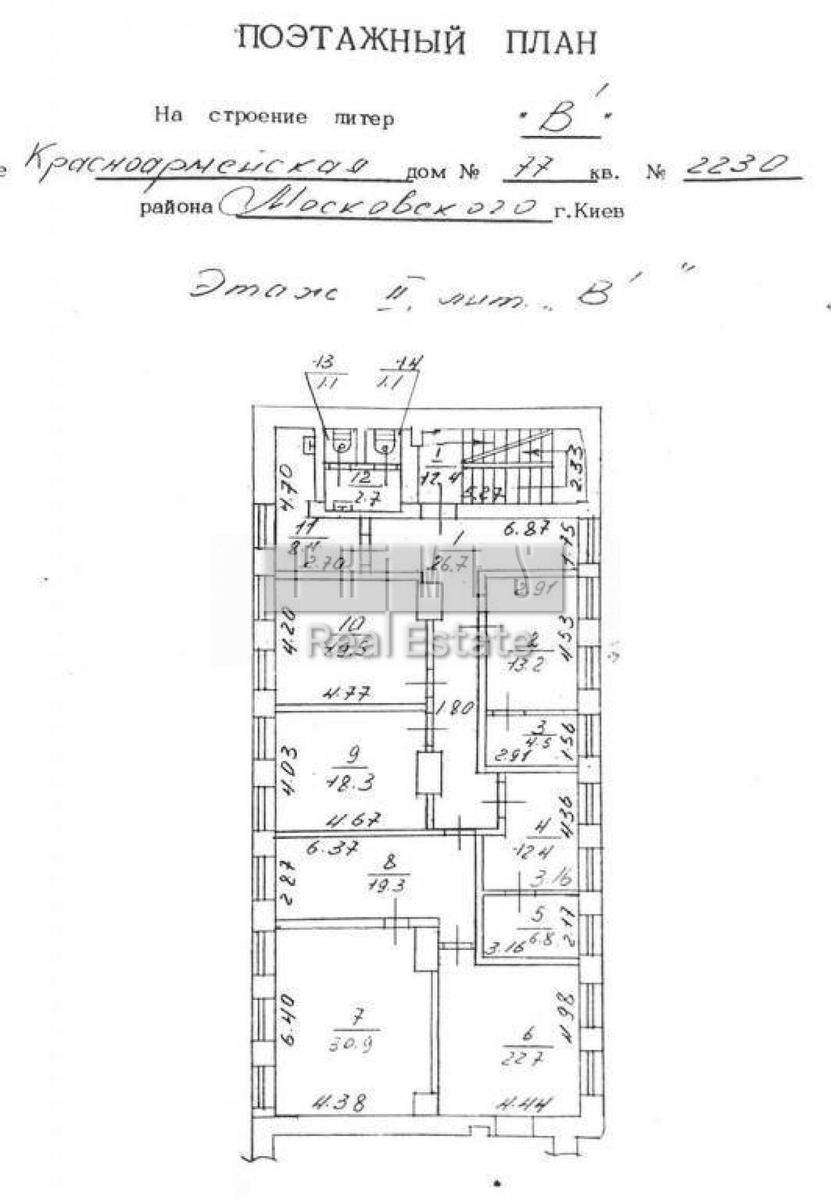 ПОЭТАЖНЫЙ ПЛАН
На строение литер "В'"
е Красноармейская дом № 77 кв. № 2230
района Московского г.Киев
Этаж II, лит. „В'"
13 14
1.1 1.1
I
12.4
5.27
2.33
4.70
12
2.7
11
8.4
2.70
1
26.7
6.87
1.75
2.91
4.20
10
19.5
4.77
Real Estate
2
13.2
4.53
1.80
3
4.5
2.91
1.56
4.03
9
18.3
4.67
4
12.4
4.36
3.16
6.37
8
19.3
2.87
5
6.8
3.16
2.17
6.40
7
30.9
4.38
6
22.7
4.98
4.44